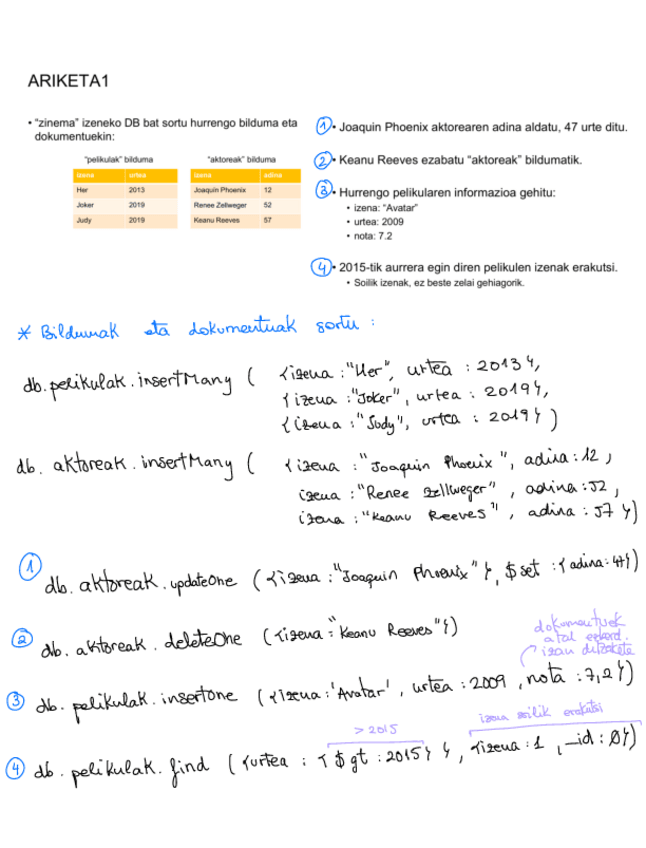 ARIKETA1
• “zinema” izeneko DB bat sortu hurrengo bilduma eta
dokumentuekin:
“pelikulak” bilduma
izena urtea
Her 2013
Joker 2019
Judy 2019
“aktoreak” bilduma
izena adina
Joaquin Phoenix 12
Renee Zellweger 52
Keanu Reeves 57
1 • Joaquin Phoenix aktorearen adina aldatu, 47 urte ditu.
2 • Keanu Reeves ezabatu “aktoreak” bildumatik.
3 • Hurrengo pelikularen informazioa gehitu:
• izena: “Avatar”
• urtea: 2009
• nota: 7.2
4 • 2015-tik aurrera egin diren pelikulen izenak erakutsi.
• Soilik izenak, ez beste zelai gehiagorik.
* Bildumak eta dokumentuak sortu :
db.pelikulak.insertMany ( {izena : "Her", urtea : 2013},
{izena : "Joker", urtea : 2019},
{izena : "Judy", urtea : 2019} )
db. aktoreak. insertMany ( {izena : "Joaquin Phoenix", adina : 12,
izena : "Renee Zellweger", adina : 52,
izena : "Keanu Reeves", adina : 57 })
1 db. aktoreak. updateOne ({izena : "Joaquin Phoenix" }, $set : {adina : 47})
2 db. aktoreak. deleteOne ({izena : "Keanu Reeves"})
dokumentuek
atal
izan ditzakete
3 db. pelikulak. insertOne ({izena : 'Avatar', urtea : 2009, nota : 7,2})
> 2015
izena soilik erakutsi
4 db. pelikulak. find ({urtea : { $gt : 2015} }, {izena : 1, _id : 0})